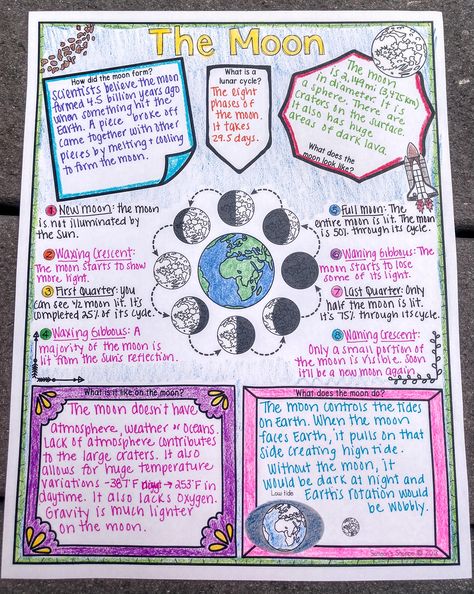 The Moon
How did the moon form?
Scientists believe the moon
formed 4.5 billion years ago
when something hit the
Earth. A piece broke off
came together with other
pieces by melting + cooling
to form the moon.
What is a
lunar cycle?
The eight
phases of
the moon.
It takes
29.5 days.
The moon
is 2,159 mi (3,475 km)
in diameter. It is
a sphere. There are
craters in the surface.
It also has huge
areas of dark lava.
What does the
moon look like?
1 New moon: the moon
is not illuminated by
the Sun.
2 Waxing Crescent:
The moon starts to show
more light.
3 First Quarter: you
can see 1/2 moon lit. It's
completed 25% of its cycle.
4 Waxing Gibbous: A
majority of the moon is
lit from the sun's reflection.
5 Full moon: The
entire moon is lit. The moon
is 50% through its cycle.
6 Waning Gibbous: The
moon starts to lose
some of its light.
7 Last Quarter: Only
half the moon is lit.
It's 75% through its cycle.
8 Waning Crescent:
Only a small portion of
the moon is visible. Soon
it'll be a new moon again.
What is it like on the moon?
The moon doesn't have
atmosphere, weather or oceans.
Lack of atmosphere contributes
to the large craters. It also
allows for huge temperature
variations -387°F → 253°F in
daytime. It also lacks oxygen.
Gravity is much lighter
on the moon.
What does the moon do?
The moon controls the tides
on Earth. When the moon
faces Earth, it pulls on that
side creating high tide.
Without the moon, it
would be dark at night and
Earth's rotation would
be wobbly.
Low tide